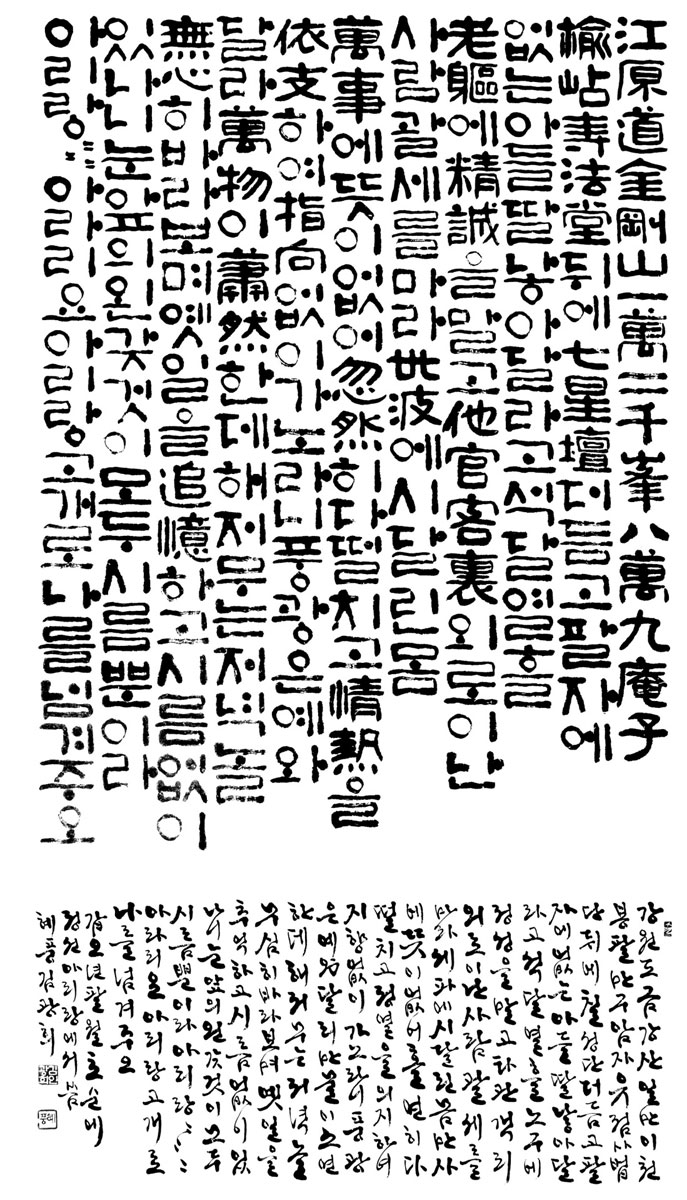 江原道金剛山一萬二千峯八萬九庵子
楡岾寺法堂뒤에七星壇더듬고팔자에
없는아들딸낳아달라고석달열흘을
老軀에精誠을말고他官客裏외로이난
사람괄세를마라世波에시달린몸
萬事에뜻이없어忽然히다떨치고情熱을
依支하여指向없이가노라니풍광은예와
달라萬物이蕭然한데해저무는저녁놀
無心히바라보며옛일을追憶하고시름없이
있나니눈앞의온갖것이모두시름뿐이라
아리랑〃〃아라리요아리랑고개로나를넘겨주오
강원도금강산일만이천
봉팔만구암자유점사법
당뒤에칠성단더듬고팔
자에없는아들딸낳아달
라고석달열흘노구에
정성을말고타관객리
외로이난사람괄세를
마라세파에시달린몸만사
에뜻이없어홀연히다
떨치고정열을의지하여
지향없이가노라니풍광
은예와달라만물이소연
한데해저무는저녁놀
무심히바라보며옛일을
추억하고시름없이있
나니눈앞의왼갖것이모두
시름뿐이라아리랑〃〃
아라리요아리랑고개로
나를넘겨주오
갑오년팔월초순에
정선아리랑에서씀
혜풍김광희